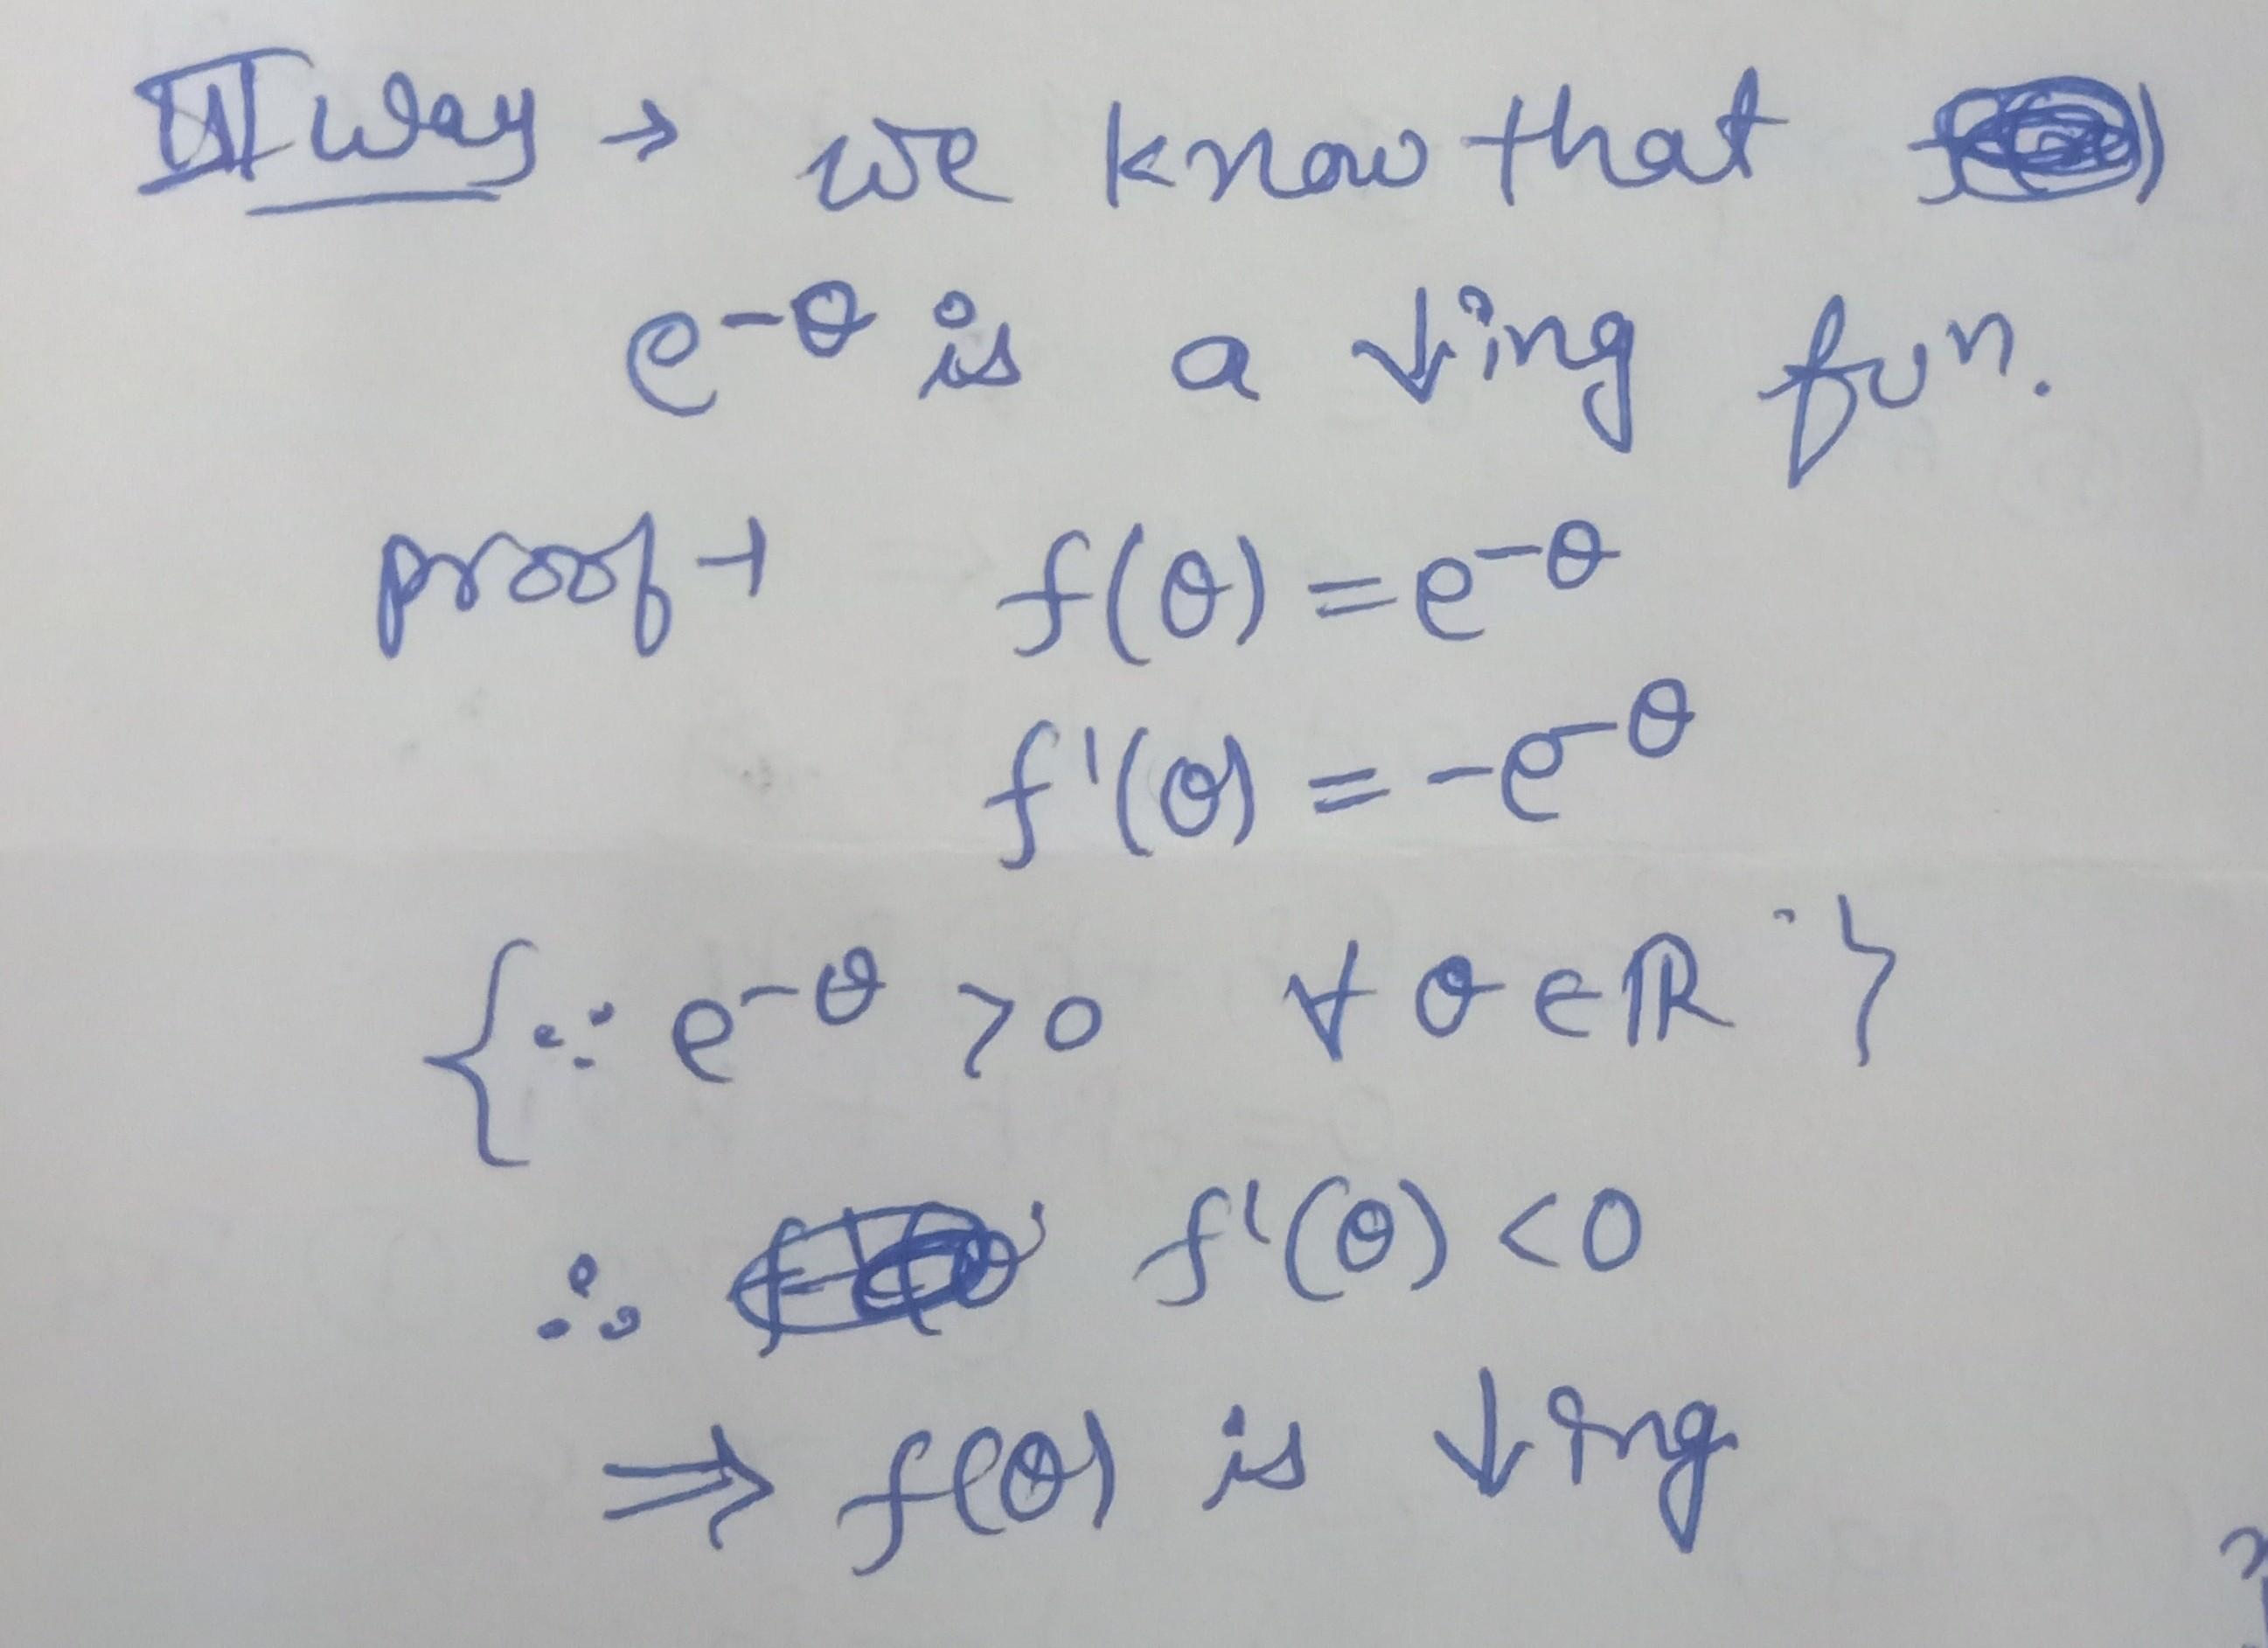 III Way → we know that
e^-θ is a ↓ing fun.
proof → f(θ) = e^-θ
f'(θ) = -e^-θ
{∵ e^-θ > 0 ∀ θ ∈ ℝ}
∴ f'(θ) < 0
⇒ f(θ) is ↓ing